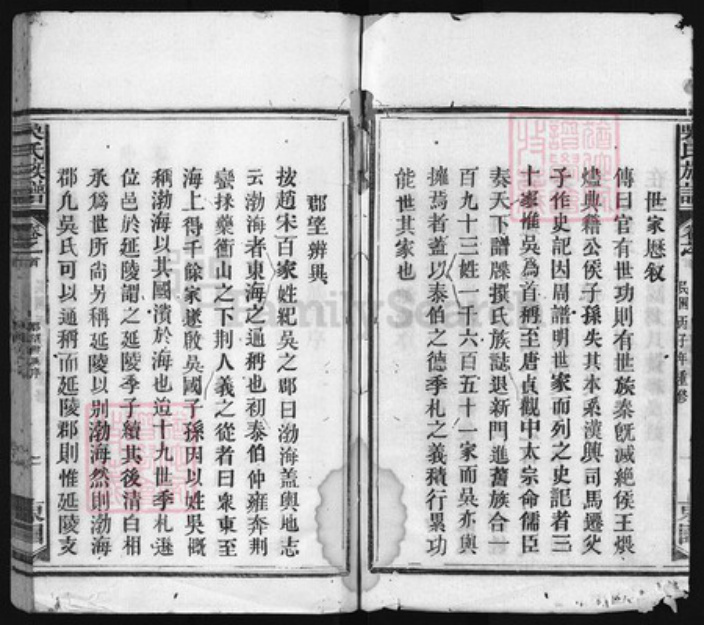 世家歷叙
傳曰官有世功則有世族秦旣滅絶侯王煨
燼典籍公侯子孫失其本系漢興司馬遷父
子作史記因周譜明世家而列之史記者三
十家惟吳爲首稱至唐貞觀中太宗命儒臣
奏天下譜牒撰氏族誌退新門進舊族合一
百九十三姓一千六百五十一家而吳亦與
擁焉者蓋以泰伯之德季札之義積行累功
能世其家也
郡望辨異
按趙宋百家姓紀吳之郡曰渤海蓋輿地志
云渤海者東海之通稱也初泰伯仲雍奔荆
蠻採藥衡山之下荆人義之從者日衆東至
海上得千餘家遂啟吳國子孫因以姓吳概
稱渤海以其國濱於海也迨十九世季札遜
位邑於延陵謂之延陵季子續其後清白相
承爲世所尙另稱延陵以别渤海然則渤海
郡凡吳氏可以通稱而延陵郡則惟延陵支
吳氏族譜
民國丙子年重修
FamilySearch